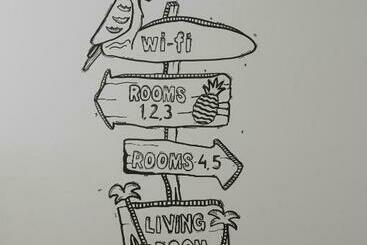 Wi-fi
ROOMS
1,2,3
ROOMS 4,5
LIVING
ROOM